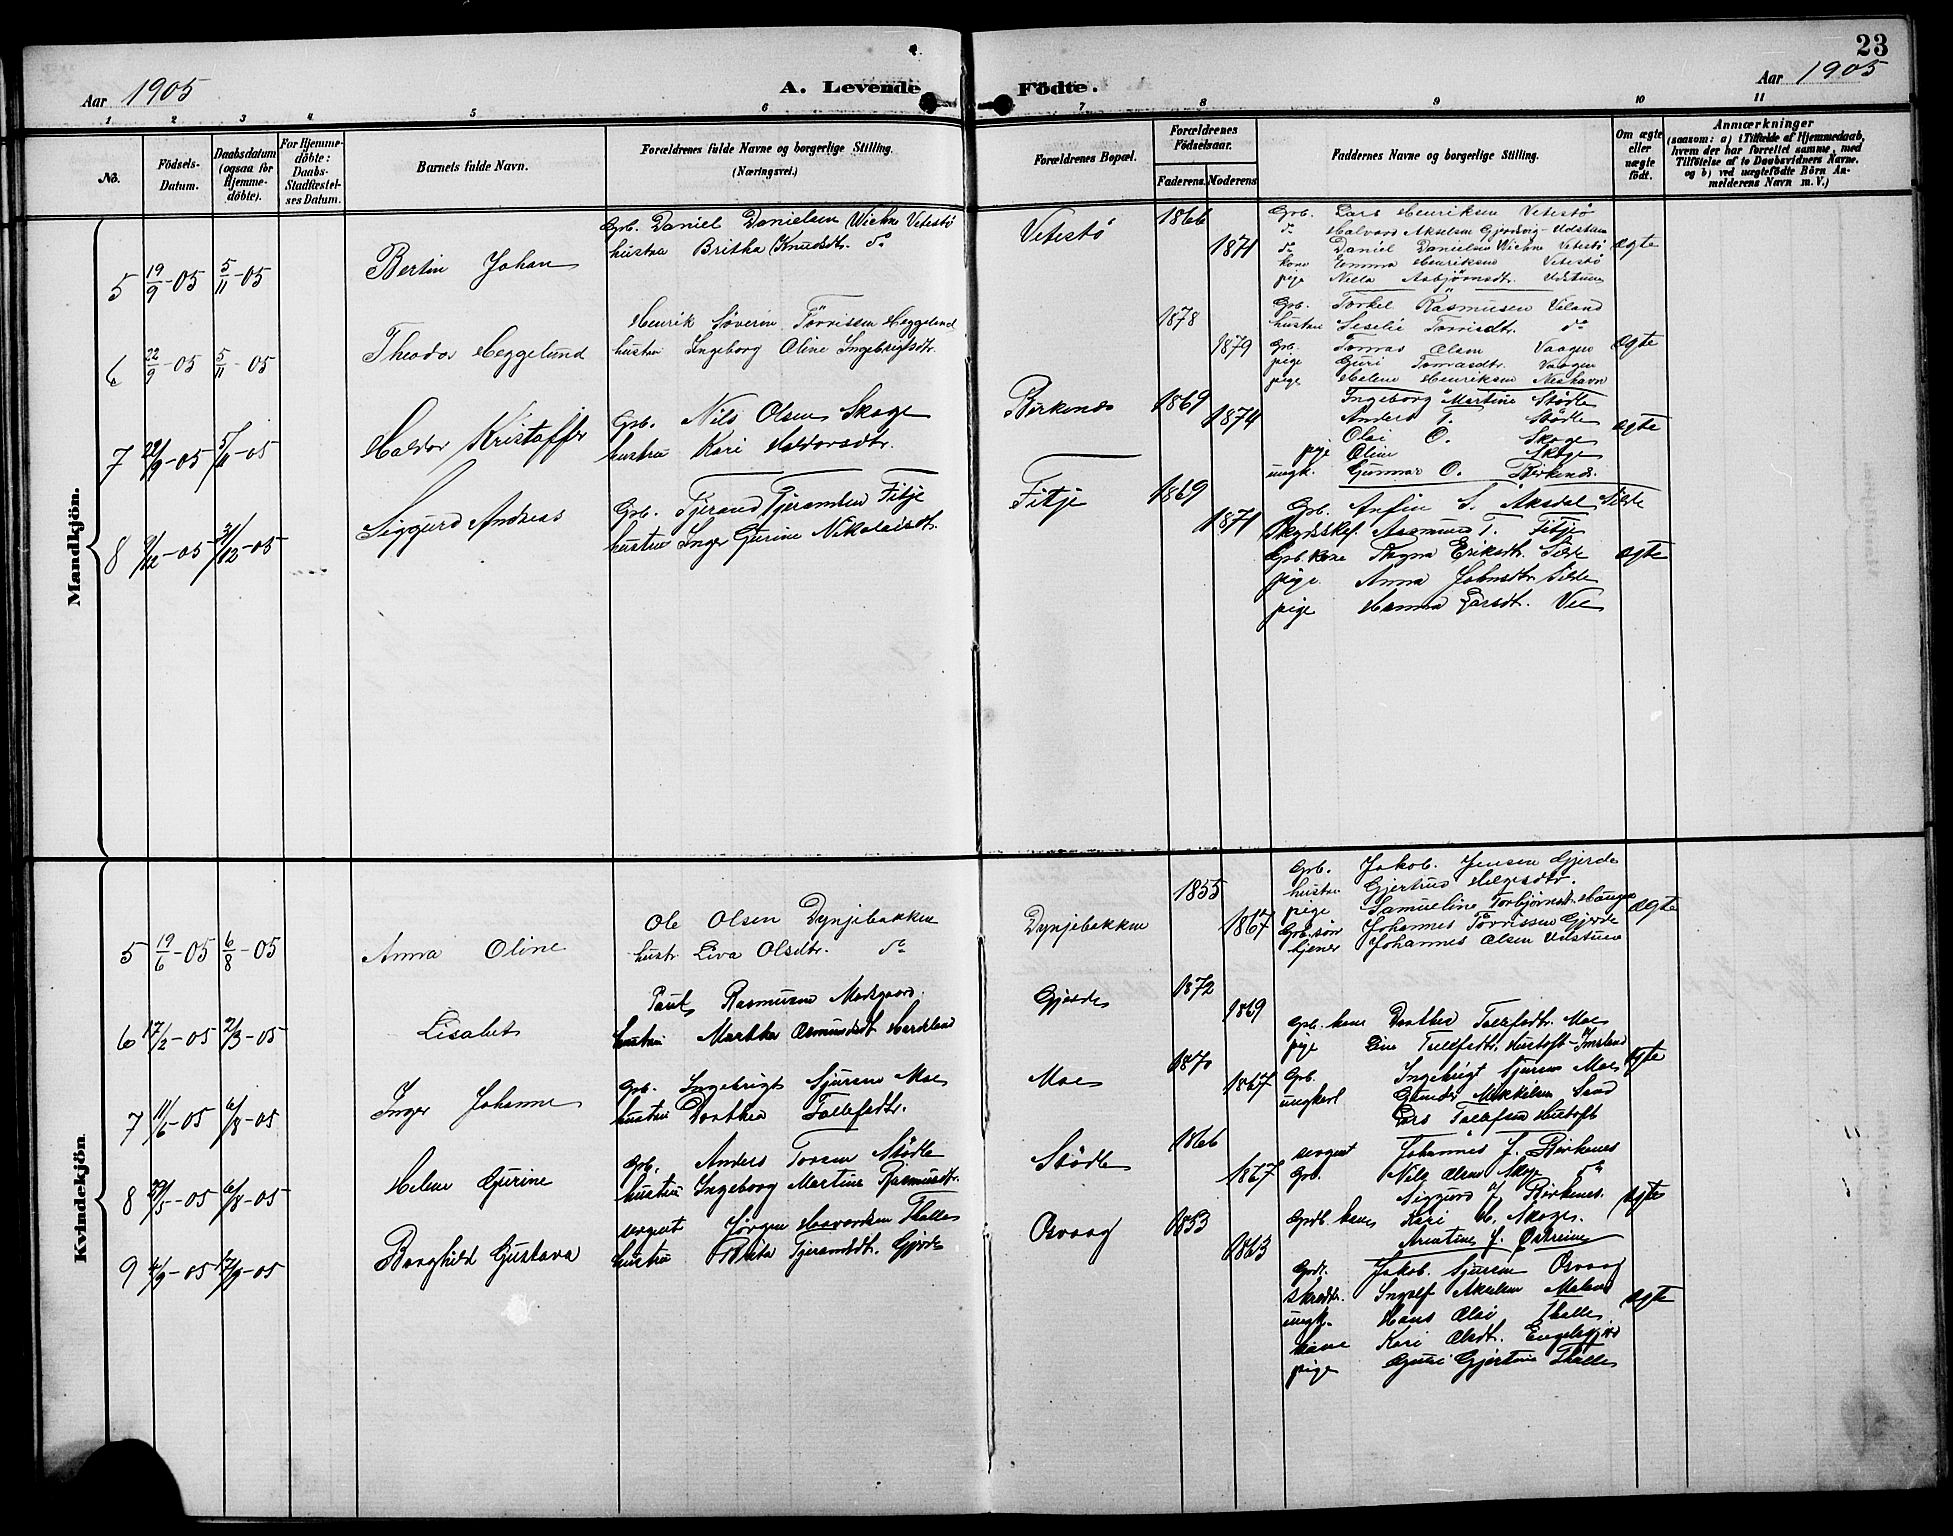 23
Aar 1905
A. Levende Födte.
Aar 1905
1 2 3 4 5 6 7 8 9 10 11
No.
Födsels-
Datum.
Daabsdatum
(ogsaa for
Hjemme-
döbte).
For Hjemme-
döbte:
Daabs-
Stadfæstel-
ses Datum.
Barnets fulde Navn.
Forældrenes fulde Navne og borgerlige Stilling.
(Næringsvei.)
Forældrenes Bopæl.
Forældrenes
Födselsaar.
Faderens. Moderens.
Faddernes Navne og borgerlige Stilling.
Om ægte
eller
uægte
födt.
Anmærkninger
(saasom: a) i Tilfælde af Hjemmedaab,
hvem der har forrettet samme, med
Tilföielse af to Daabsvidners Navne,
og b) ved uægtefödte Börn An-
melderens Navn m. V.)
Mandkjön.
5 19/9-05 5/11-05
Bertin Johan
Grb. Daniel Danielsen Wichne Vetestø
hustru Britha Knudsdtr. do
Vetestø
1866
1871
Grb. Lars Henriksen Vetestø
do Halvard Akselsen Gjerdsvig-Udstuen
do Daniel Danielsen Wichne Vetestø
kone Emma Henriksen Vetestø
pige Nilla Asbjørnsdtr. Udstuen
ægte
6 22/9-05 5/11-05
Theodor Heggelund
Henrik Søverin Tørrissen Heggelund
hustru Ingeborg Oline Ingebrigtsdtr.
1878
1879
Grb. Torkel Rasmusen Viland
hustru Seselie Torrisdtr. do
Grb. Tomas Olsen Vaagen
pige Guri Tomasdtr. Vaagen
pige Helene Henriksen Neshavn
ægte
7 22/9-05 5/11-05
Haldor Kristoffer
Grb. Nils Olsen Skoge
hustru Kari Haldorsdtr.
Birkenes
1869
1874
Ingeborg Martine Stødle
Anders T. Stødle
Olai O. Skoge
pige Oline Skoge
ungk. Gunnar O. Birkenes.
ægte
8 9/12-05 31/12-05
Siggurd Andreas
Grb. Tjerand Tjeramsen Fitje
hustru Inger Gurine Nikolaisdtr.
Fitje
1869
1871
Grb. Anfin S. Aksdal Silde
Skydsskf. Rasmus T. Fitje
Grb. kone Magna Eriksdt. Silde
pige Anna Johnsdtr. Silde
pige Hanna Larsdt. Vee
ægte
Kvindekjön.
5 19/6-05 6/8-05
Anna Oline
Ole Olsen Dynjebakken
hustr. Liva Olsdtr. do
Dynjebakken
1855
1867
Grb. Jakob Jensen Gjerde
hustru Gjertrud Helgesdtr.
pige Samueline Torbjørnsd. Hauge
Grb.søn Johannes Tørrissen Gjerde
tjener Johannes Olsen Udstuen
ægte
6 17/2-05 2/3-05
Lisabet
Paul Rasmusen Madsgaard.
hustru Martha Osmundsdt. Hardeland
Gjerde
1872
1869
7 11/6-05 6/8-05
Inger Johanne
Grb. Ingebrigt Sjursen Moe
hustru Dorthea Tollefsdtr.
Moe
1870
1867
Grb. kone Dorthea Tollefsdtr. Moe
pige Line Tollefsdtr. Hustoft-Imsland
Grb. Ingebrigt Sjursen Moe
ungkarl Gunder Mikkelsen Sand
Lars Tollefsen Hustoft
ægte
8 29/5-05 6/8-05
Helene Gurine
Grb. Anders Torsen Stødle
hustru Ingeborg Martine Rasmusdtr.
Stødle
1866
1867
sergent Johannes J. Birkenes
Grb. Nils Olsen Skoge do
Siggurd J. Birkenes.
Grdb. kone Kari H. Skoge.
J. Østreim
ægte
9 4/9-05 17/9-05
Borghild Gustava
sergent Jørgen Haavardsen Thalle
hustru Brita Tjerandsdt. Gjerde
Osvaag
1853
1863
Grdb. Jakob Sjursen Osvaag
Skrædr. Ingolf Akselsen Meland
ungk. Hans Olai Thalle
kone Kari Olsdt. Engelsgjerd
pige Guri Gjertine Thalle
ægte